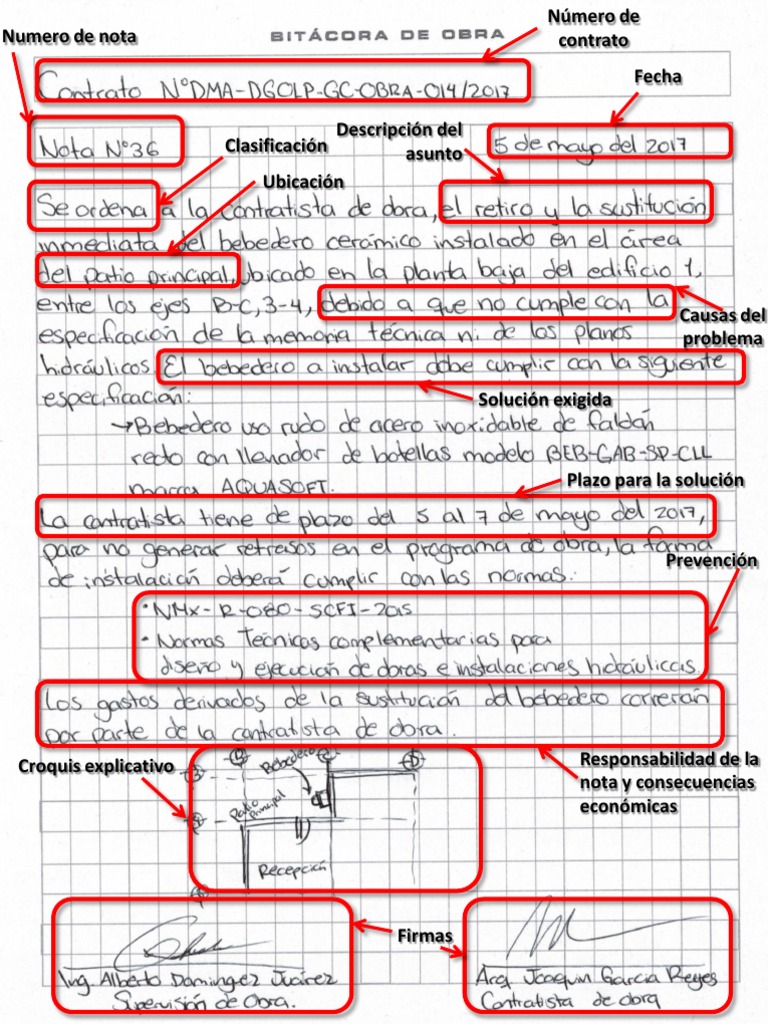 Número de contrato
Numero de nota
BITÁCORA DE OBRA
Contrato N°DMA-DGOLP-GC-OBRA-014/2017
Fecha
Nota N°36
Clasificación
Descripción del asunto
5 de mayo del 2017
Ubicación
Se ordena a la contratista de obra, el retiro y la sustitución
inmediata del bebedero cerámico instalado en el área
del patio principal, ubicado en la planta baja del edificio 1,
entre los ejes B-C, 3-4, debido a que no cumple con la
Causas del problema
especificación de la memoria técnica ni de los planos
hidráulicos. El bebedero a instalar debe cumplir con la siguiente
especificación:
Solución exigida
→Bebedero uso rudo de acero inoxidable de faldón
recto con llenador de botellas modelo BEB-GAB-SP-CLL
marca AQUASOFT.
Plazo para la solución
La contratista tiene de plazo del 5 al 7 de mayo del 2017,
para no generar retrasos en el programa de obra, la forma
Prevención
de instalación deberá cumplir con las normas:
• NMX-R-080-SCFI-2015
• Normas Técnicas complementarias para
diseño y ejecución de obras e instalaciones hidráulicas
Los gastos derivados de la sustitución del bebedero correrán
por parte de la contratista de obra.
Croquis explicativo
Bebedero
Patio principal
Recepción
Responsabilidad de la
nota y consecuencias
económicas
Firmas
Ing. Alberto Domingez Juárez
Supervisión de Obra.
Arq Joaquin Garcia Reyes
Contratista de obra